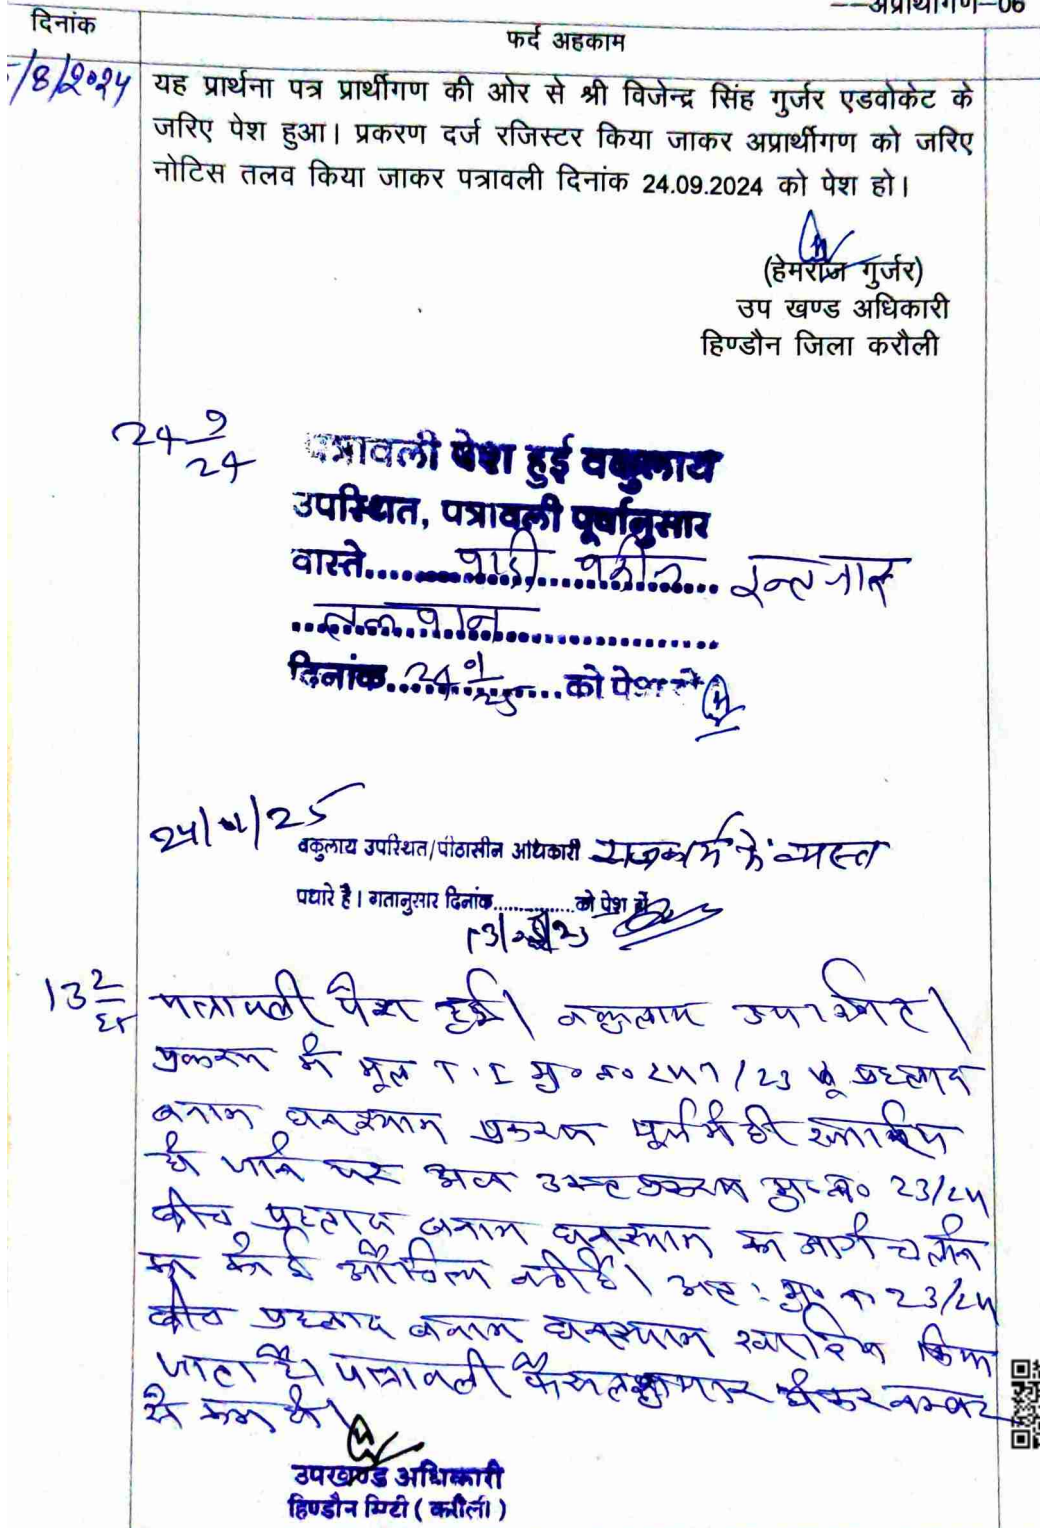 ––अप्रार्थीगण–06
दिनांक
फर्द अहकाम
/8/2024
यह प्रार्थना पत्र प्रार्थीगण की ओर से श्री विजेन्द्र सिंह गुर्जर एडवोकेट के
जरिए पेश हुआ। प्रकरण दर्ज रजिस्टर किया जाकर अप्रार्थीगण को जरिए
नोटिस तलव किया जाकर पत्रावली दिनांक 24.09.2024 को पेश हो।
(हेमराज गुर्जर)
उप खण्ड अधिकारी
हिण्डौन जिला करौली
24 9/24
पत्रावली पेश हुई वकुलाय
उपस्थित, पत्रावली पूर्वानुसार
वास्ते
दिनांक 24 1/25 को पेश
24/1/25
वकुलाय उपस्थित/पीठासीन अधिकारी राजकार्य में व्यस्त
पधारे है। गतानुसार दिनांक............को पेश हो
13/2/25
13 2/25
पत्रावली पेश हुई। वकुलाय उपस्थित।
प्रकरण में मूल T.I मु० न० /23 प्रहलाद
बनाम घनश्याम प्रकरण पूर्व में ही खारिज
हो जाने पर अब उक्त प्रकरण मु० न० 23/24
बीच प्रहलाद बनाम घनश्याम का आगे चलाने
का कोई औचित्य नहीं है। अतः मु० न० 23/24
बीच प्रहलाद बनाम घनश्याम खारिज किया
जाता है। पत्रावली फैसल शुमार होकर नम्बर
से कम हो।
उपखण्ड अधिकारी
हिण्डौन सिटी (करौली)